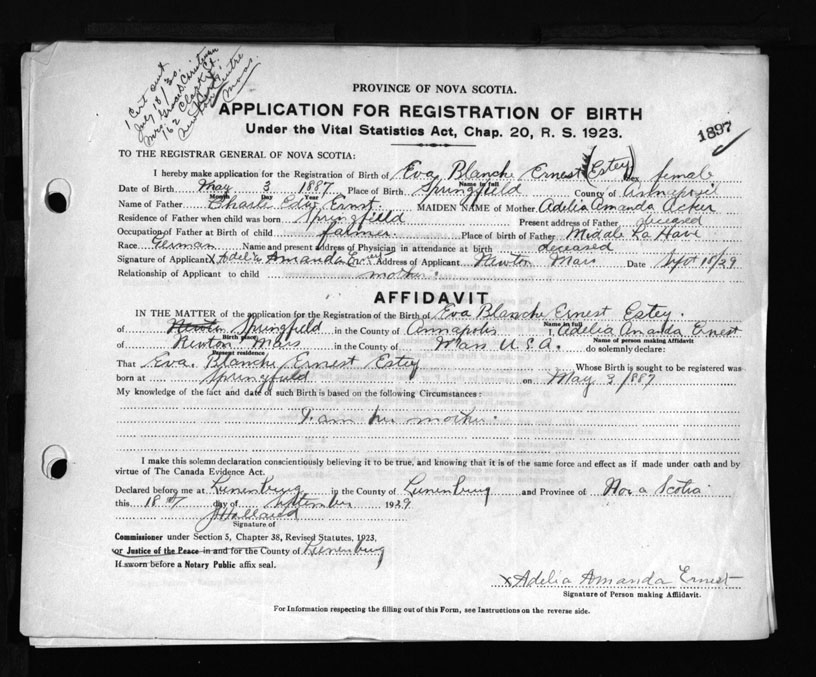 1 Cert sent
July 18/30.
Mrs. Grace Christman
162 Clark St
Newton Centre
Mass.
PROVINCE OF NOVA SCOTIA.
APPLICATION FOR REGISTRATION OF BIRTH
Under the Vital Statistics Act, Chap. 20, R. S. 1923.
1897
TO THE REGISTRAR GENERAL OF NOVA SCOTIA:
I hereby make application for the Registration of Birth of Eva Blanche Ernest (Estey) Sex female
Name in full
Date of Birth May 3 1887 Place of Birth Springfield County of
Month Day Year
Name of Father Edw Ernst. MAIDEN NAME of Mother Adelia Amanda Acker
Residence of Father when child was born Springfield Present address of Father deceased
Occupation of Father at Birth of child farmer Place of birth of Father Middle La Have
Race German Name and present address of Physician in attendance at birth deceased
Signature of Applicant X Adelia Amanda Ernest Address of Applicant Newton Mass Date Sept 18/29
Relationship of Applicant to child mother.
AFFIDAVIT
IN THE MATTER of the application for the Registration of the Birth of Eva Blanche Ernest Estey.
Name in full
of Newton Springfield in the County of Annapolis I, Adelia Amanda Ernest
Birth place Name of person making Affidavit
of Newton Mass in the County of Mass U.S.A. do solemnly declare:
Present residence
That Eva. Blanche Ernest Estey Whose Birth is sought to be registered was
born at Springfield on May 3 1887
My knowledge of the fact and date of such Birth is based on the following Circumstances:
I am her mother.
I make this solemn declaration conscientiously believing it to be true, and knowing that it is of the same force and effect as if made under oath and by
virtue of The Canada Evidence Act.
Declared before me at Lunenburg in the County of Lunenburg and Province of Nova Scotia
this 18th day of September 1929
Signature of
Commissioner under Section 5, Chapter 38, Revised Statutes, 1923,
or Justice of the Peace in and for the County of Lunenburg
If sworn before a Notary Public affix seal.
X Adelia Amanda Ernest
Signature of Person making Affidavit.
For Information respecting the filling out of this Form, see Instructions on the reverse side.